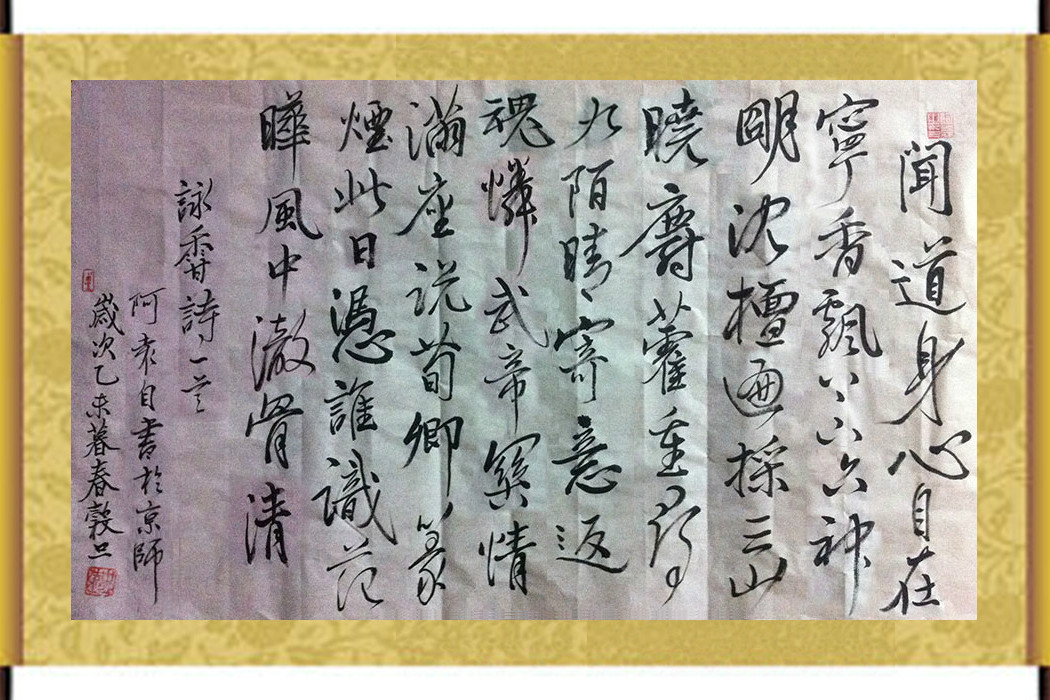 聞道身心自在
寧香飄六神
明沈檀遍採三山
曉麝藿重尋
九陌晴寄意返
魂憐武帝關情
滿座說荀卿篆
煙此日憑誰識范
曄風中澈骨清
詠香詩一首
阿袁自書於京師
歲次乙未暮春穀旦